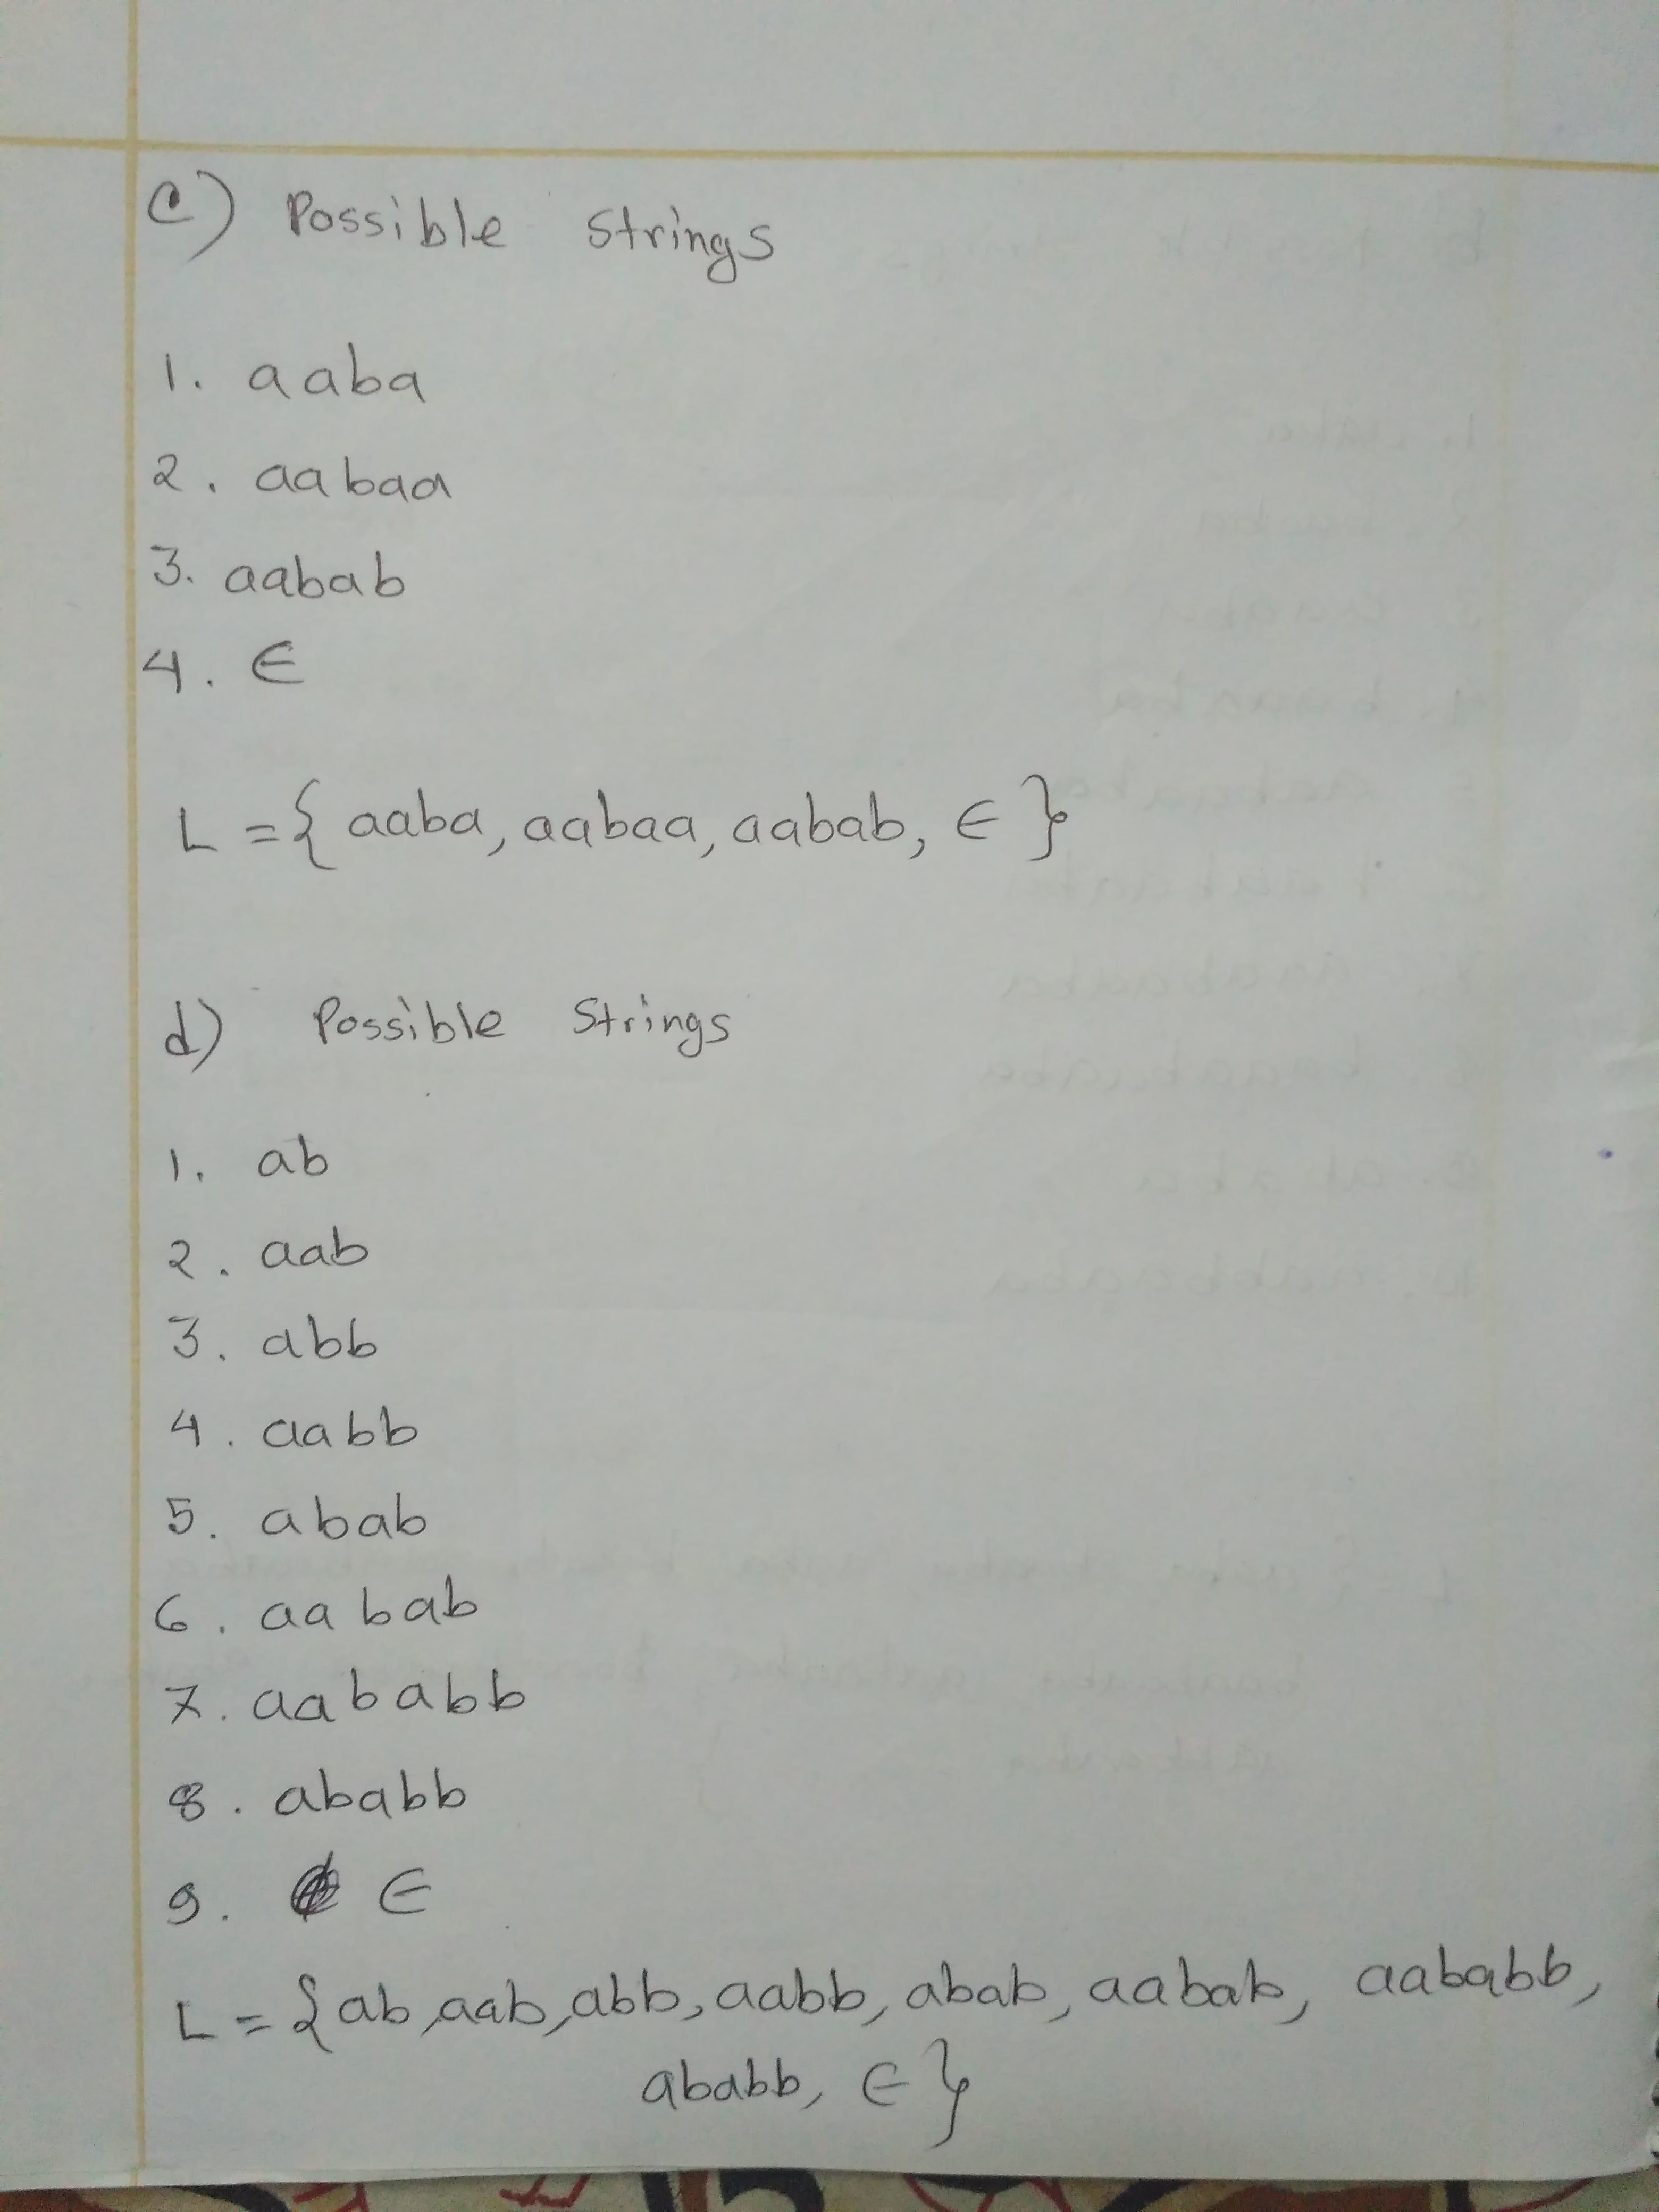 c) Possible Strings
1. aaba
2. aabaa
3. aabab
4. ∈
L = { aaba, aabaa, aabab, ∈ }
d) Possible Strings
1. ab
2. aab
3. abb
4. aabb
5. abab
6. aabab
7. aababb
8. ababb
9. ∈
L = { ab, aab, abb, aabb, abab, aabab, aababb,
ababb, ∈ }